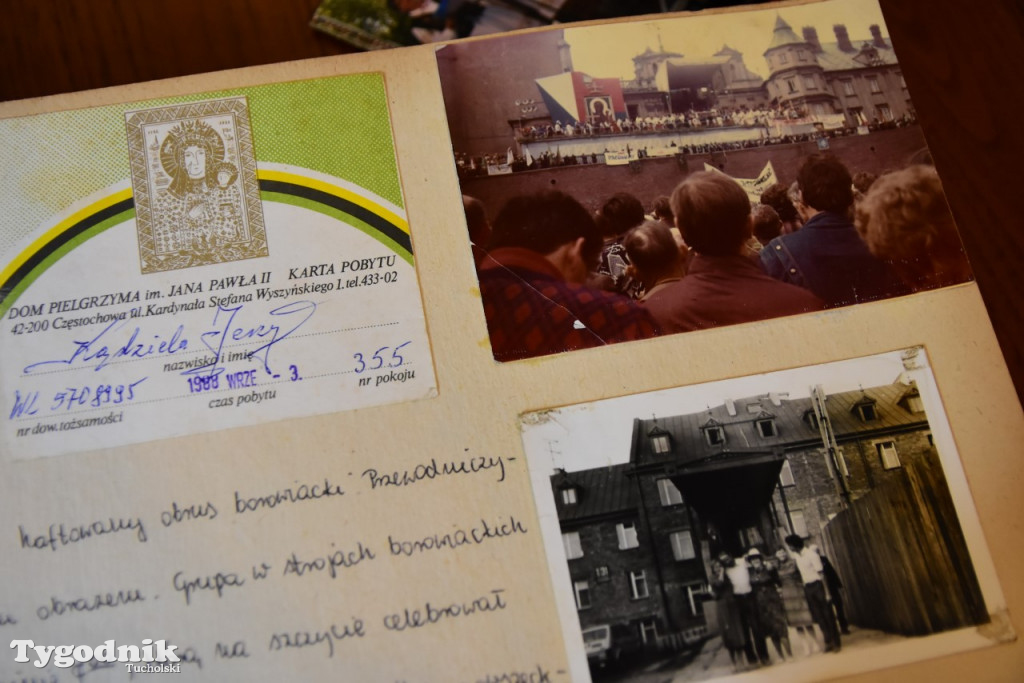 DOM PIELGRZYMA im. JANA PAWŁA II KARTA POBYTU
42-200 Częstochowa ul. Kardynała Stefana Wyszyńskiego 1. tel. 433-02
Kądziela Jerzy
nazwisko i imię
WL 5708995 1988 WRZE - 3. 355
nr dow. tożsamości czas pobytu nr pokoju
haftowany obrus borowiacki. Przewodniczy-
obrazem. Grupa w strojach borowiackich
na szczycie celebrował
Tygodnik
Tucholski